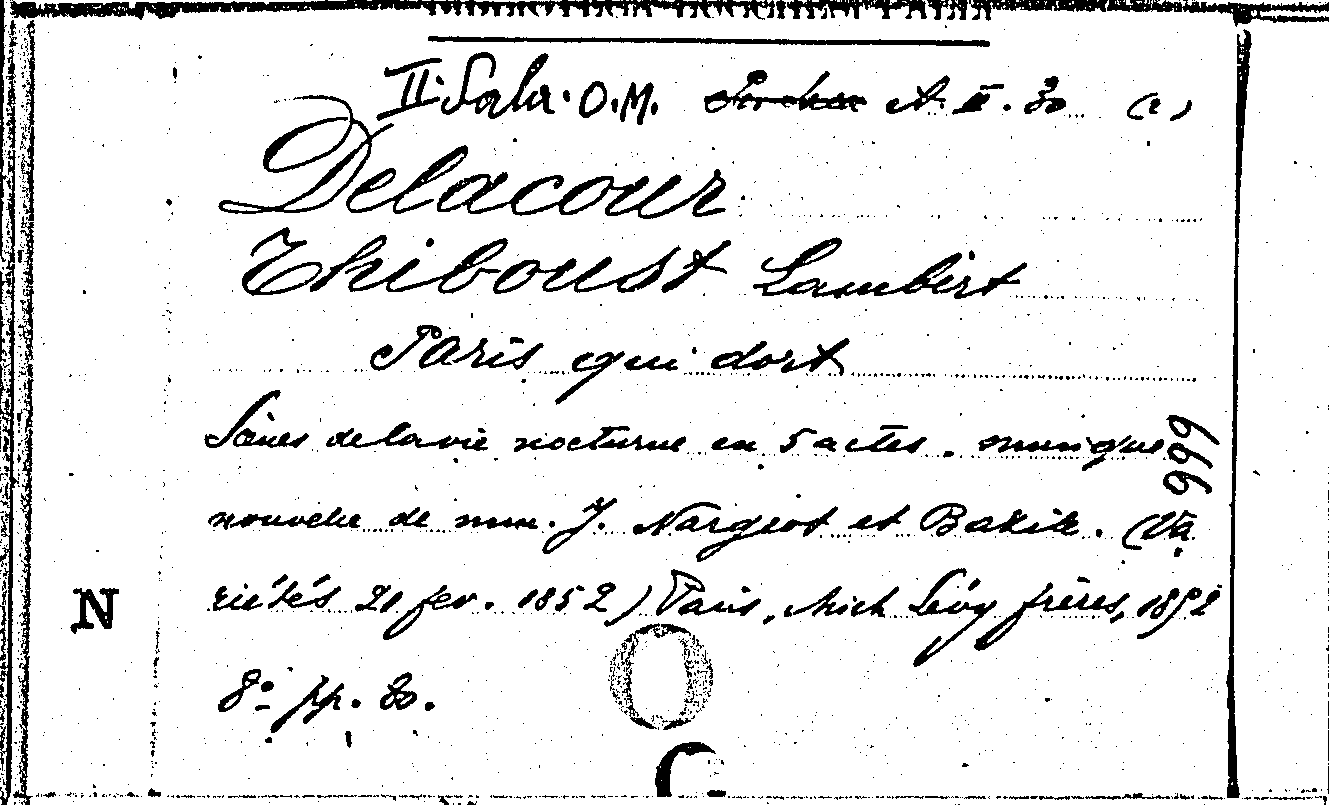 II. Salar. O.M. A. II. 30 (2)
Delacour
Thiboust Lambert
Paris qui dort
Scènes de la vie nocturne en 5 actes. musique
999
nouvelle de mm. J. Nargeot et Bazile. (Va
riétés 21 fev. 1852) Paris, Mich Lévy frères, 1852
N
8° pp. 80.